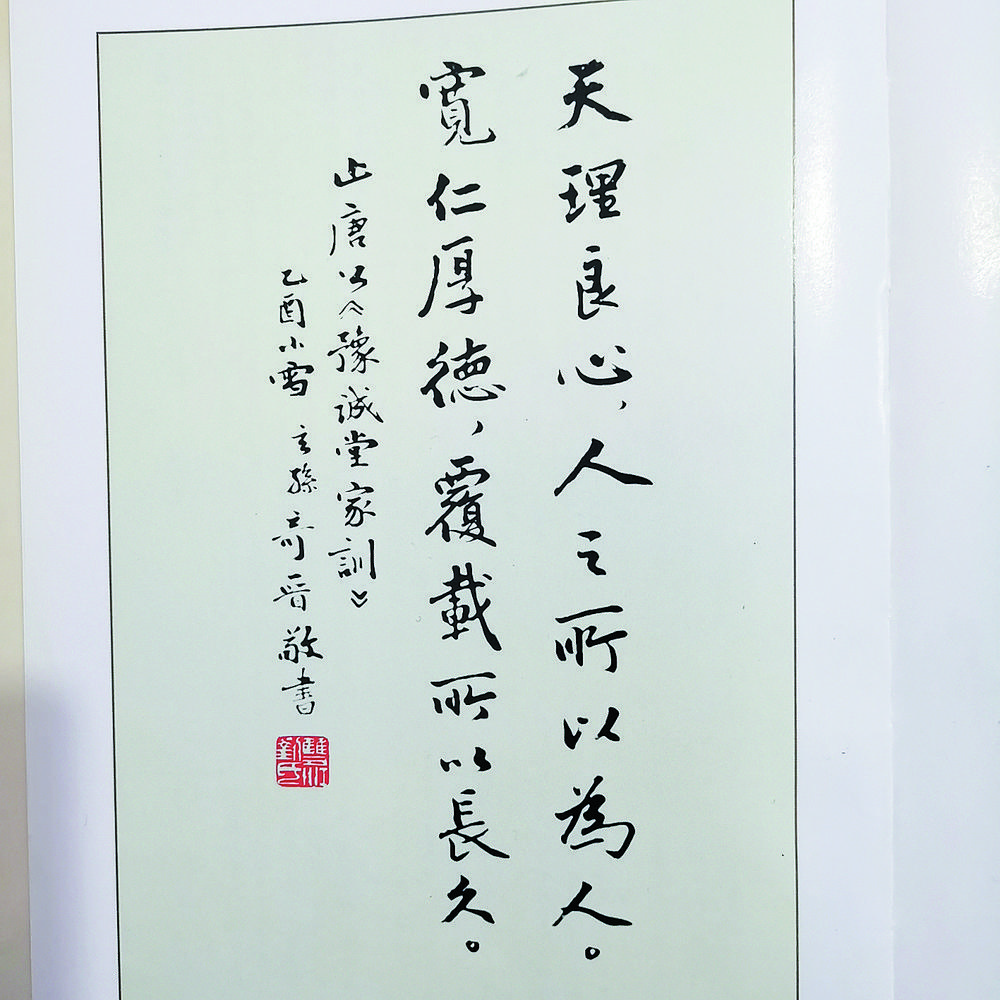 天理良心，人之所以為人。
寬仁厚德，覆載所以長久。
止唐公《豫誠堂家訓》
乙酉小雪 玄孫奇晋敬書
雙江劉氏